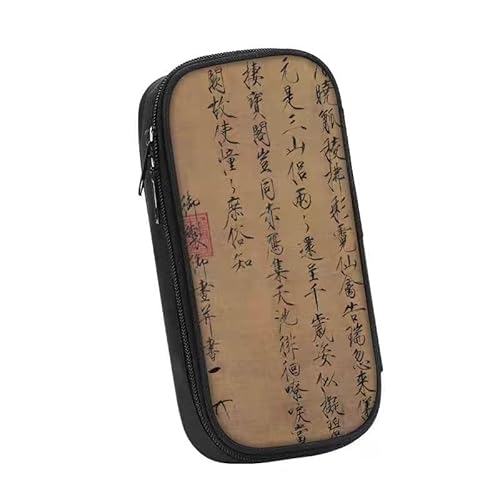 曉觚稜拂彩霓仙禽告瑞忽來儀
元是三山侶兩〻還呈千歲姿似擬碧
棲寶閣豈同赤鴈集天池徘徊嘹唳當
闕故使憧〻庶俗知
御製御畫并書